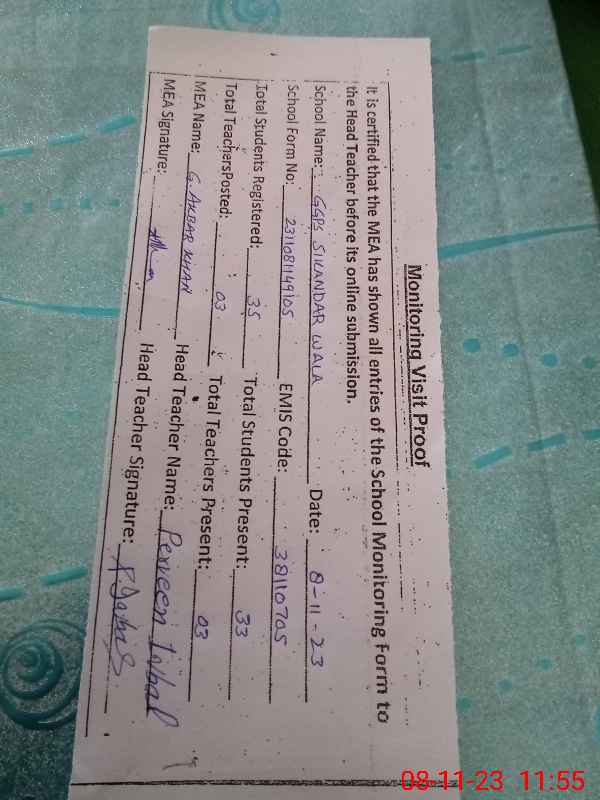 Monitoring Visit Proof
It is certified that the MEA has shown all entries of the School Monitoring Form to
the Head Teacher before its online submission.
School Name: GGPS SIKANDAR WALA Date: 8-11-23
School Form No: 2311081149105 EMIS Code: 38110705
Total Students Registered: 35 Total Students Present: 33
Total TeachersPosted: 03 Total Teachers Present: 03
MEA Name: G. AKBAR KHAN Head Teacher Name: Perveen Iqbal
MEA Signature: Head Teacher Signature:
08-11-23 11:55